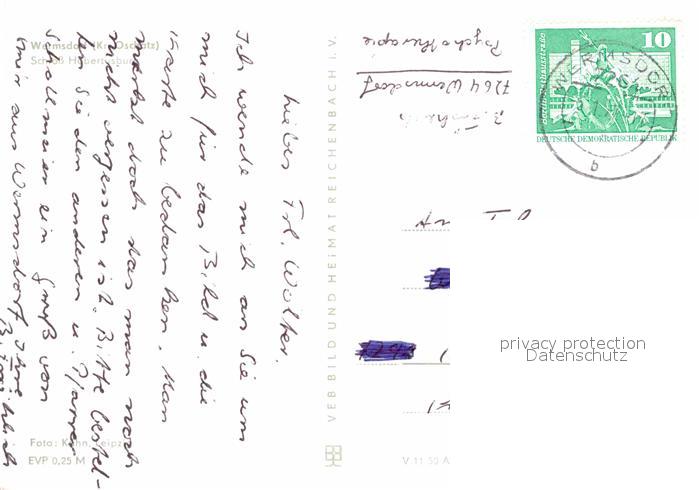 Wermsdorf (Kr. Oschatz)
Schloß Hubertusburg
Lieber Frl. Walter.
Ich wende mich an Sie um
mich für das Bild u. die
Karte zu bedanken. Man
merkt doch das man noch
nicht vergessen ist. Bitte bestel-
len Sie den anderen u. Pfarrer
ein Gruß von
mir aus Wermsdorf Ihre
Foto: Kühn, Leipzig
EVP 0,25 M
VEB BILD UND HEIMAT REICHENBACH i. V.
V 11 50 A
Psychotherapie
7264 Wermsdorf
10
DEUTSCHE DEMOKRATISCHE REPUBLIK
WERMSDORF
b
privacy protection
Datenschutz